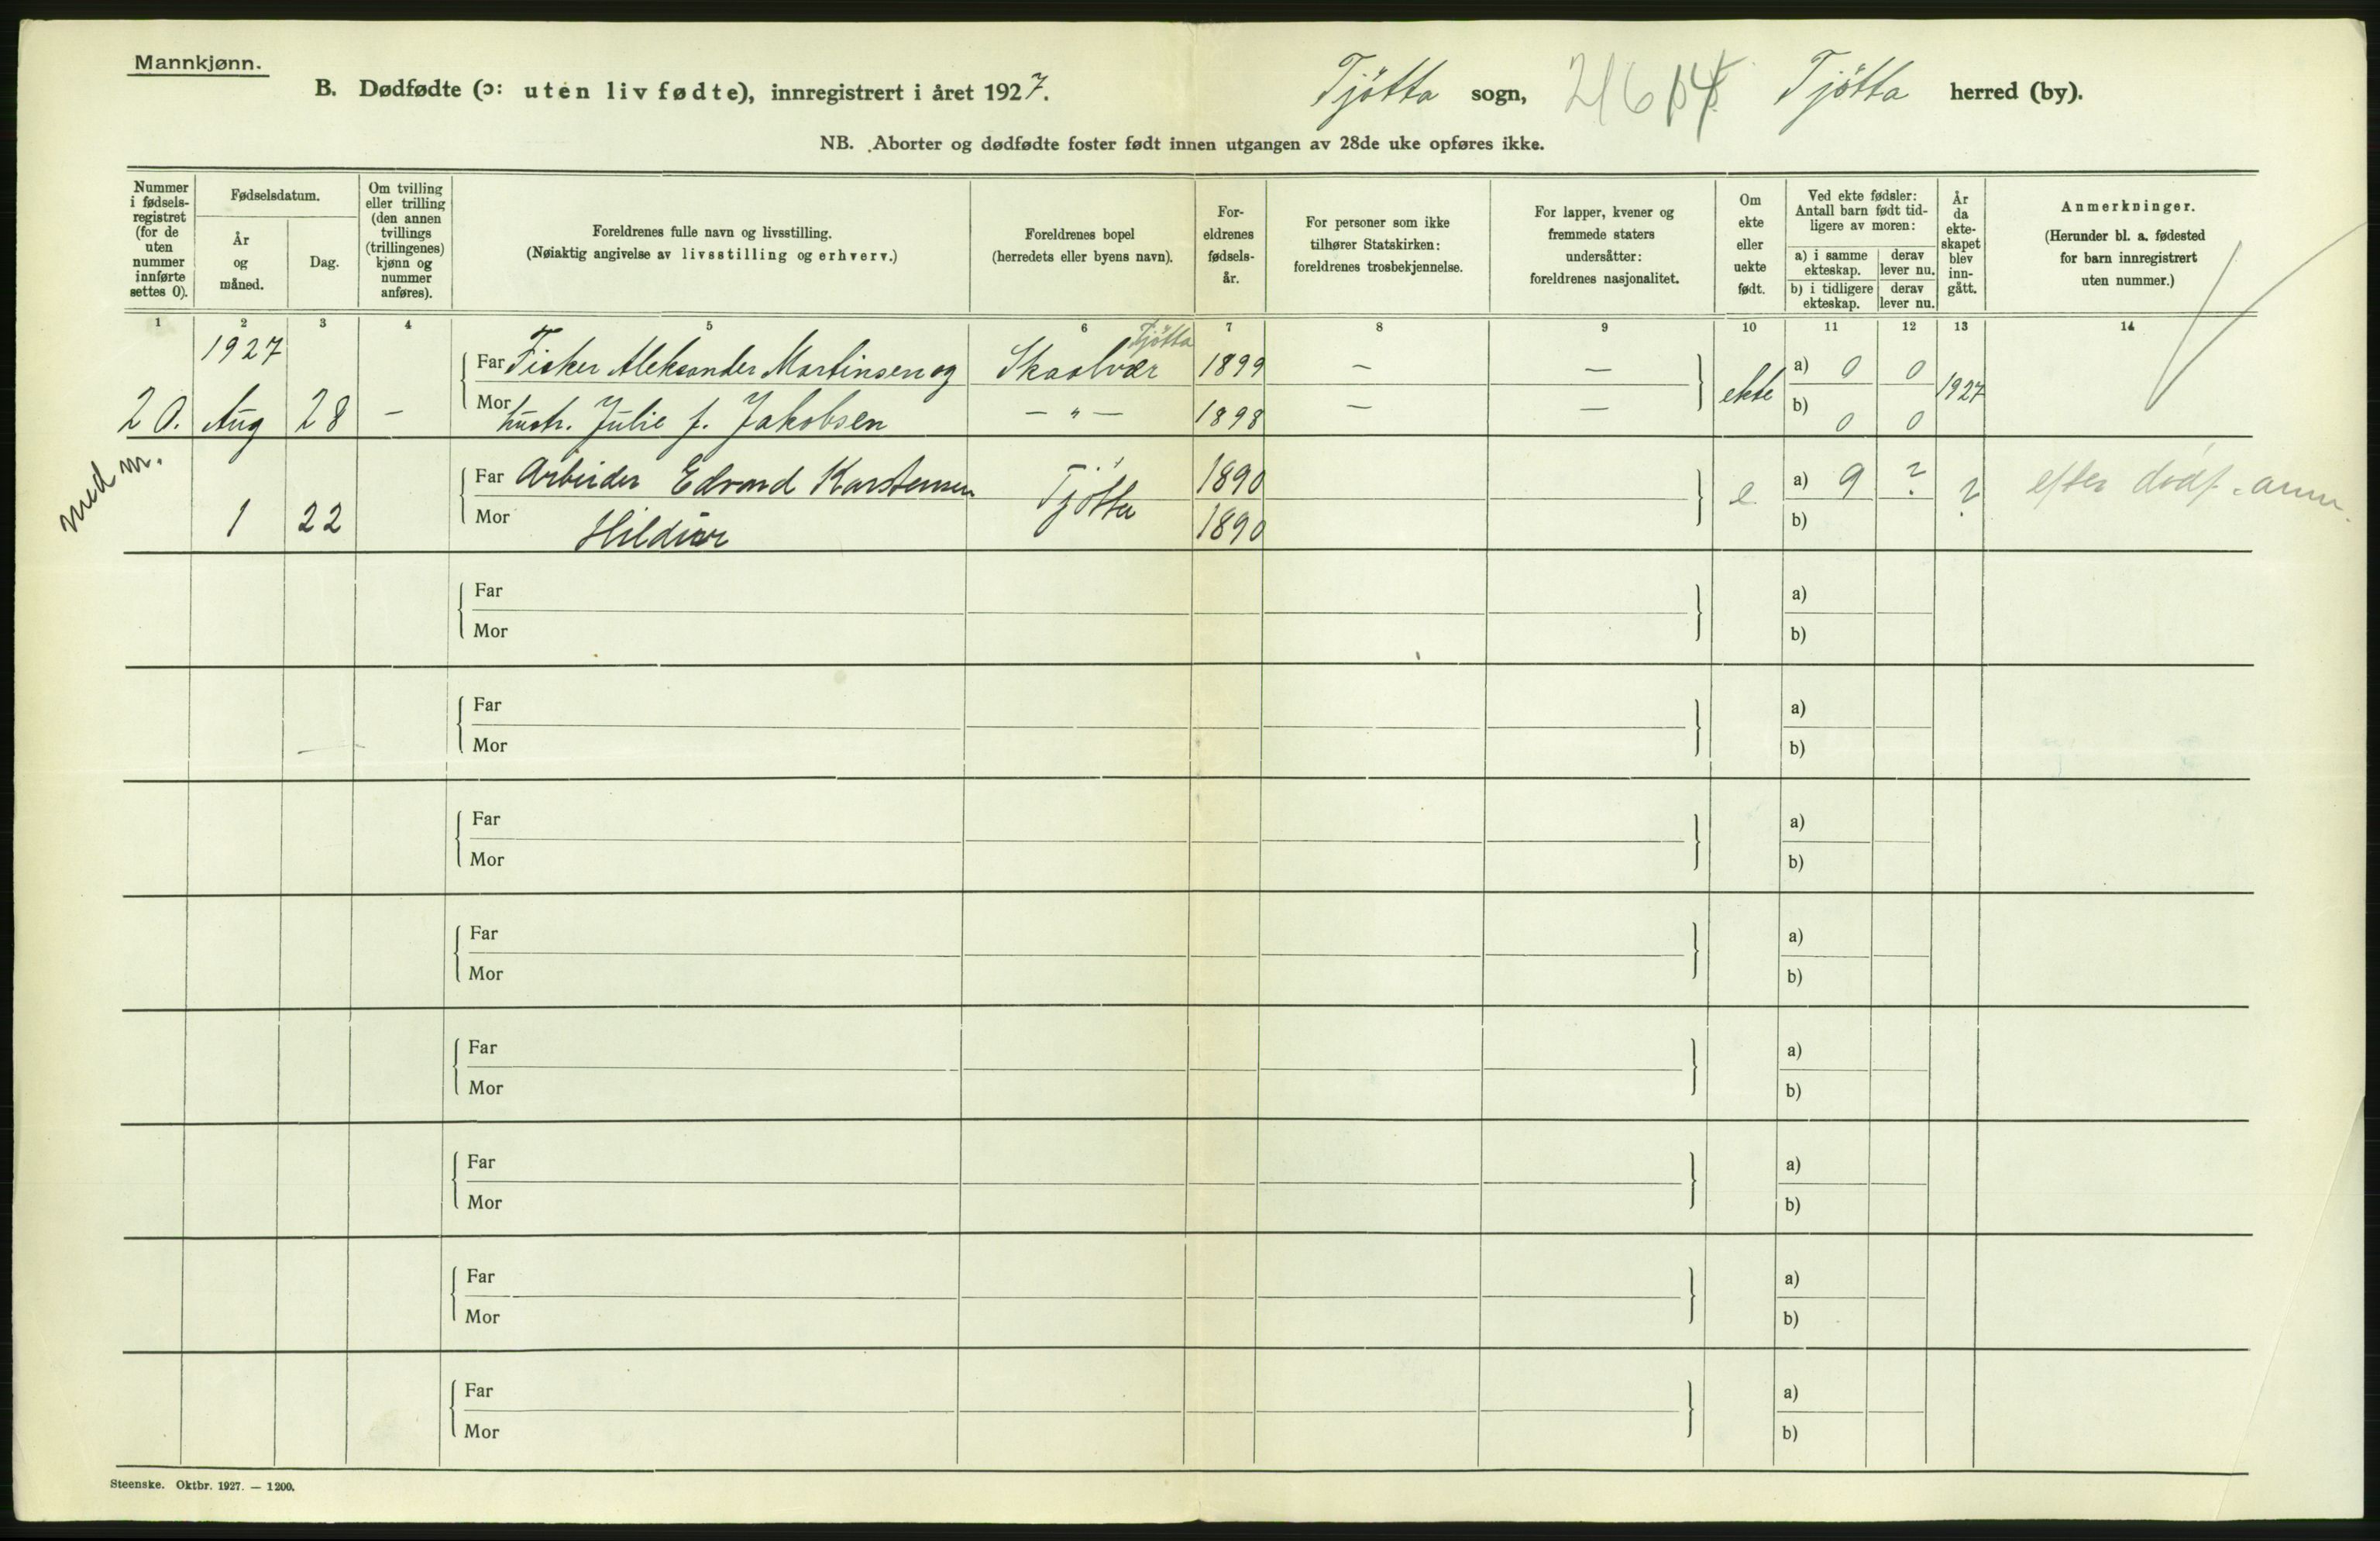 Mannkjønn.
B. Dødfødte (ɔ: uten liv fødte), innregistrert i året 1927.
Tjötta sogn, Tjötta herred (by).
NB. Aborter og dødfødte foster født innen utgangen av 28de uke opføres ikke.
Nummer i fødsels-registret (for de uten nummer innførte settes 0).
Fødselsdatum.
År og måned.
Dag.
Om tvilling eller trilling (den annen tvillings (trillingenes) kjønn og nummer anføres).
Foreldrenes fulle navn og livsstilling.
(Nøiaktig angivelse av livsstilling og erhverv.)
Foreldrenes bopel
(herredets eller byens navn).
For-eldrenes fødsels-år.
For personer som ikke tilhører Statskirken: foreldrenes trosbekjennelse.
For lapper, kvener og fremmede staters undersåtter: foreldrenes nasjonalitet.
Om ekte eller uekte født.
Ved ekte fødsler: Antall barn født tid-ligere av moren:
a) i samme ekteskap.
derav lever nu.
b) i tidligere ekteskap.
derav lever nu.
År da ekte-skapet blev inn-gått.
Anmerkninger.
(Herunder bl. a. fødested for barn innregistrert uten nummer.)
1 2 3 4 5 6 7 8 9 10 11 12 13 14
1927
Tjötta
Far Fisker Aleksander Martinsen og Skaalvær 1899 — — a) 0 0
20. Aug 28 — Mor hustr. Julie f. Jakobsen — " — 1898 — — ekte b) 0 0 1927
med m.
Far Arbeider Edvard Karstensen Tjötta 1890 e a) 9 ? ? efter dødf. anm.
1 22 Mor 1890 b)
Far a)
Mor b)
Far a)
Mor b)
Far a)
Mor b)
Far a)
Mor b)
Far a)
Mor b)
Far a)
Mor b)
Far a)
Mor b)
Far a)
Mor b)
Steenske. Oktbr. 1927. — 1200.